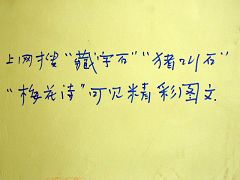 上网搜“藏字石”“猪叫石”
“梅花诗”可见精彩图文.